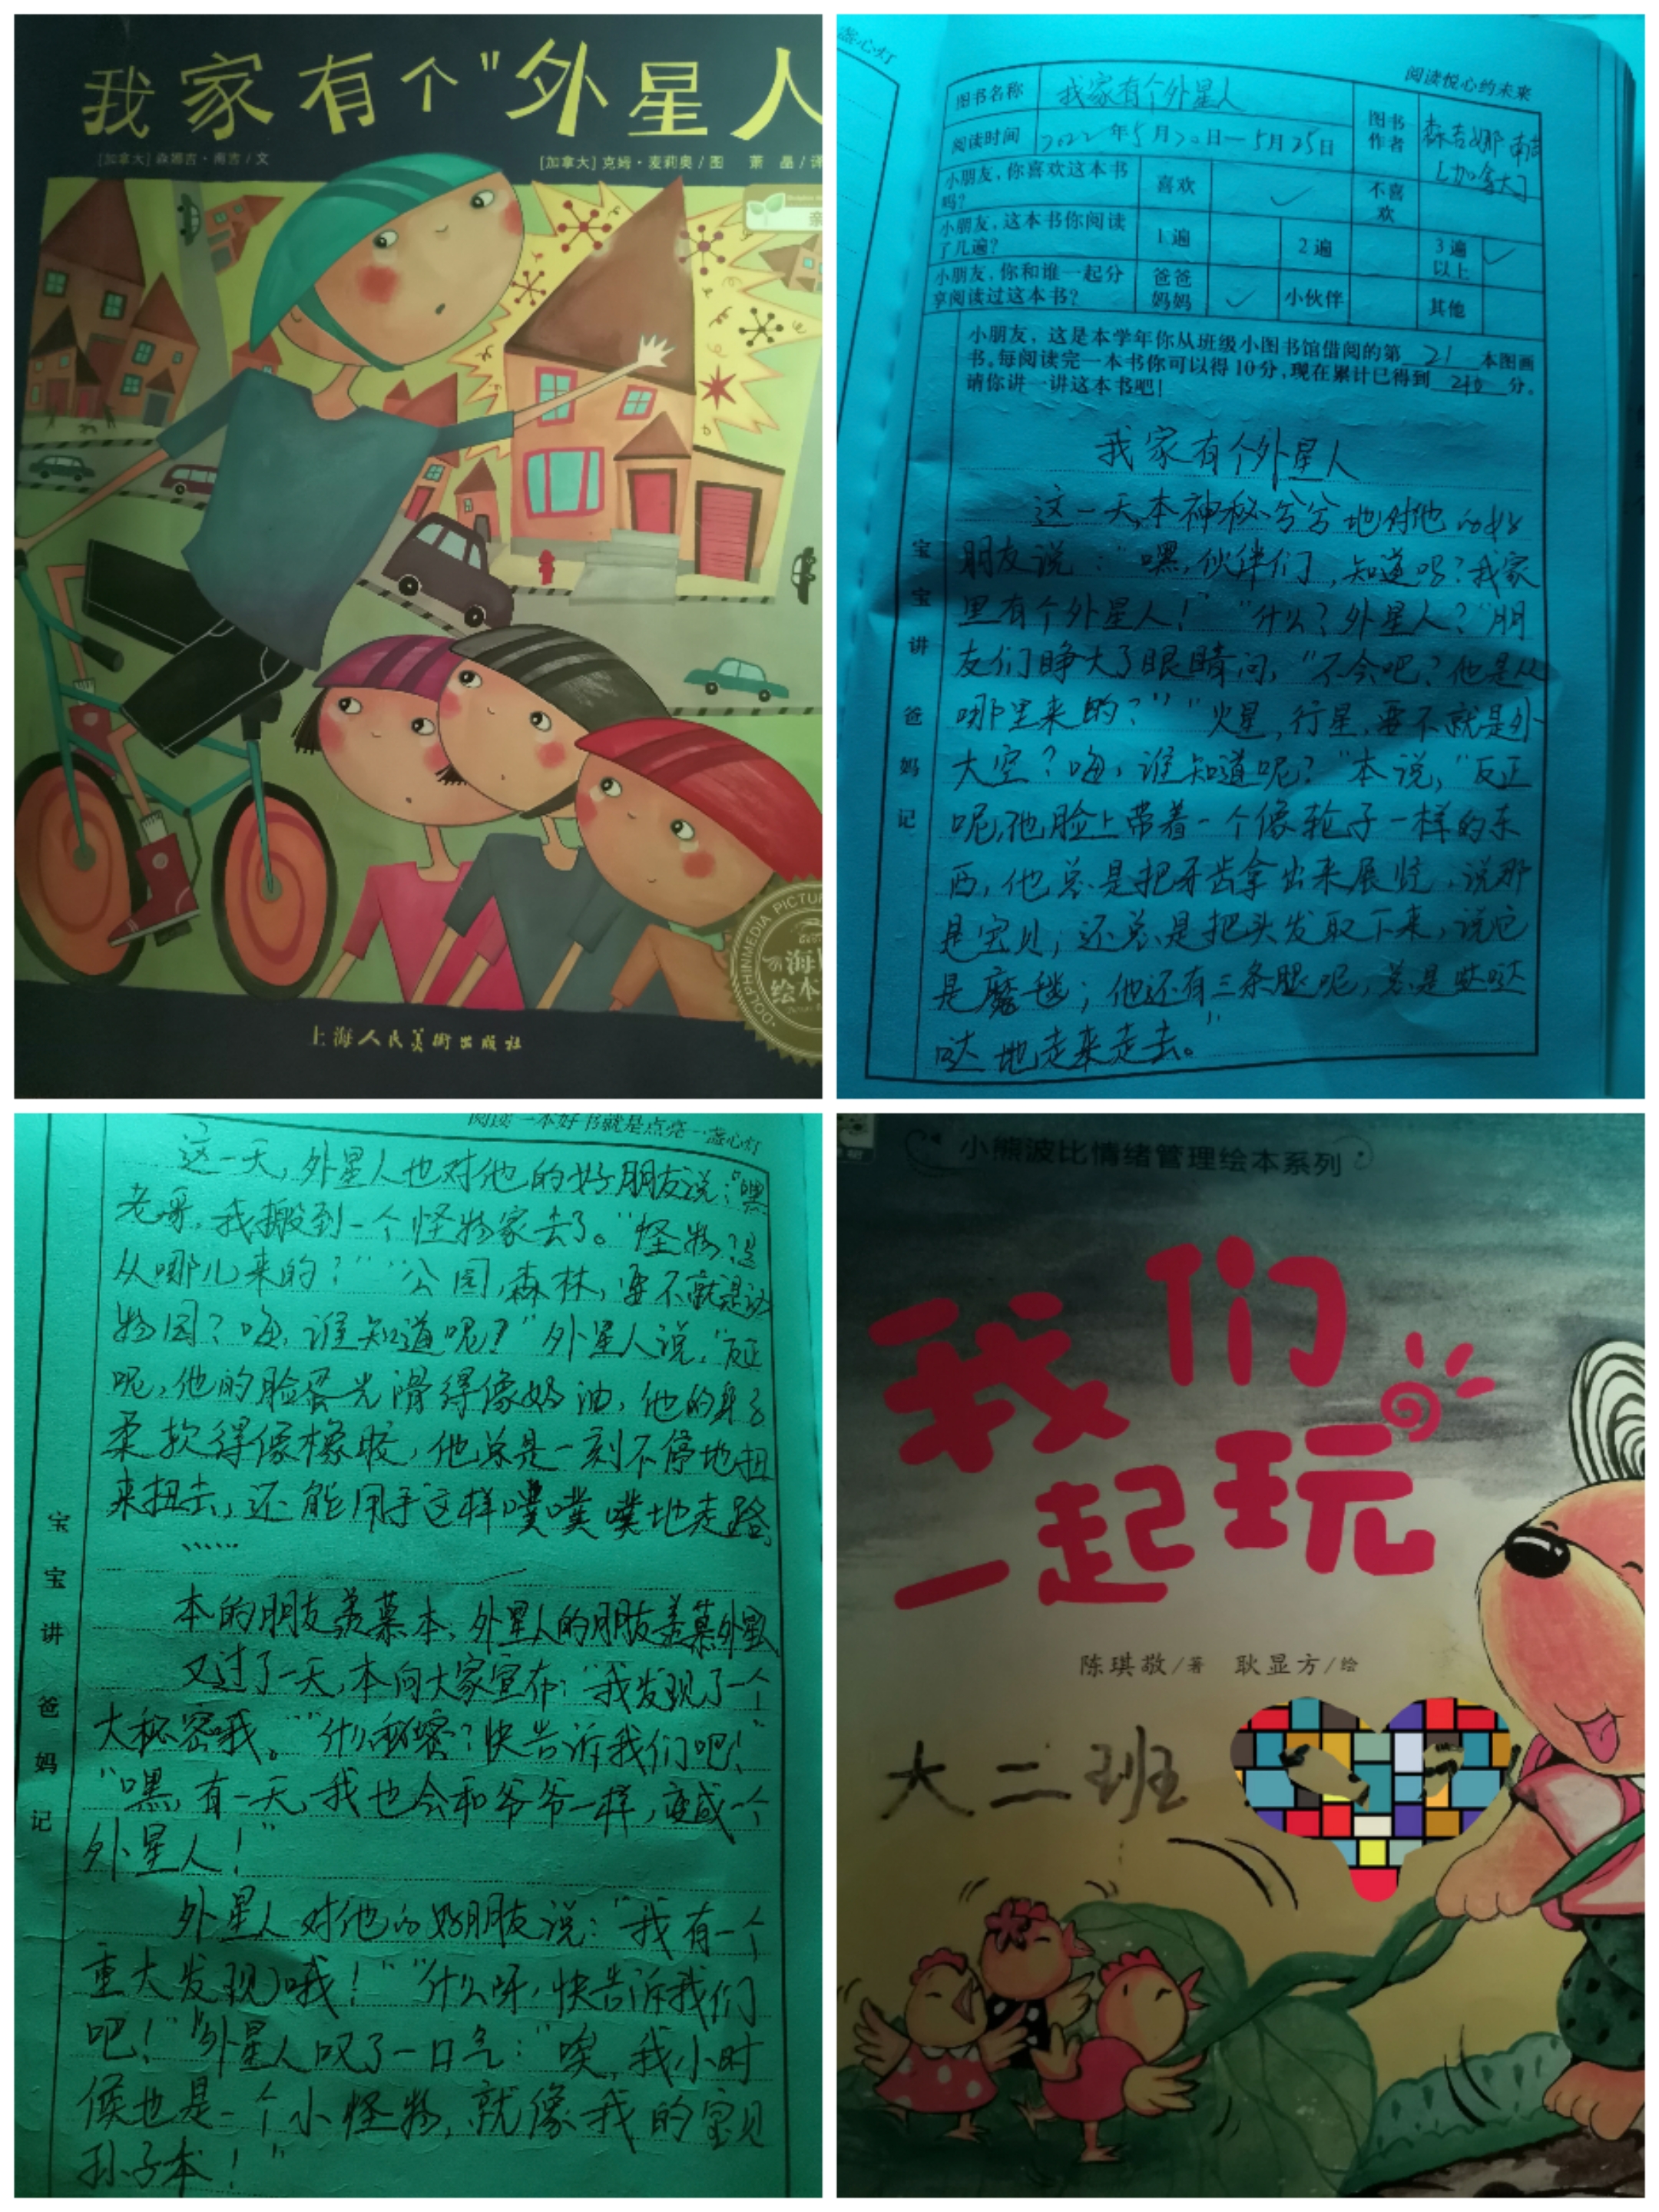 我家有个"外星人
[加拿大] 森娜吉·南吉/文
[加拿大] 克姆·麦莉奥/图 萧晶/译
亲
DOLPHINMEDIA PICTU
海
绘本
上海人民美術出版社
盏心灯
阅读悦心约未来
图书名称 我家有个外星人 图书作者 森吉娜 南吉 [加拿大]
阅读时间 2022年5月20日—5月25日
小朋友,你喜欢这本书吗? 喜欢 ✓ 不喜欢
小朋友,这本书你阅读了几遍? 1遍 2遍 3遍以上 ✓
小朋友,你和谁一起分享阅读过这本书? 爸爸妈妈 ✓ 小伙伴 其他
小朋友,这是本学年你从班级小图书馆借阅的第 21 本图画
书。每阅读完一本书你可以得10分,现在累计已得到 210 分。
请你讲一讲这本书吧!
宝宝讲 爸妈记
我家有个外星人
这一天,本神秘兮兮地对他的好
朋友说:"嘿,伙伴们,知道吗?我家
里有个外星人!""什么?外星人?"朋
友们睁大了眼睛问,"不会吧?他是从
哪里来的?""火星,行星,要不就是外
太空?嗨,谁知道呢?"本说,"反正
呢,他脸上带着一个像轮子一样的东
西,他总是把牙齿拿出来展览,说那
是宝贝,还总是把头发取下来,说它
是魔毯;他还有三条腿呢,总是哒哒
哒地走来走去。"
阅读一本好书就是点亮一盏心灯
宝宝讲 爸妈记
这一天,外星人也对他的好朋友说:"嘿
老哥,我搬到一个怪物家去了。"怪物?是
从哪儿来的?""公园,森林,要不就是动
物园?嗨,谁知道呢?"外星人说,"反正
呢,他的脸蛋光滑得像奶油,他的身子
柔软得像橡胶,他总是一刻不停地扭
来扭去,还能用手这样噗噗噗地走路,
……
本的朋友羡慕本,外星人的朋友羡慕外星人
又过了一天,本向大家宣布:"我发现了一个
大秘密哦。""什么秘密?快告诉我们吧!"
"嘿,有一天,我也会和爷爷一样,变成一个
外星人!"
外星人对他的好朋友说:"我有一个
重大发现哦!""什么呀,快告诉我们
吧!"外星人叹了一口气:"唉,我小时
候也是一个小怪物,就像我的宝贝
孙子本!"
小熊波比情绪管理绘本系列
我们
一起玩
陈琪敬/著 耿显方/绘
大二班